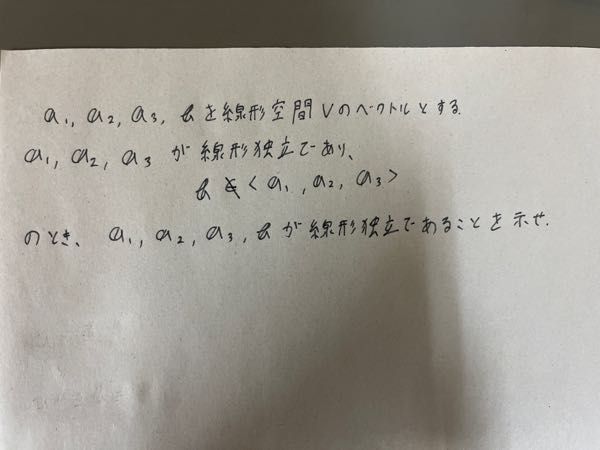 a₁, a₂, a₃, b を線形空間 V のベクトルとする.
a₁, a₂, a₃ が 線形独立であり、
b ∉ < a₁, a₂, a₃ >
のとき、 a₁, a₂, a₃, b が線形独立であることを示せ.